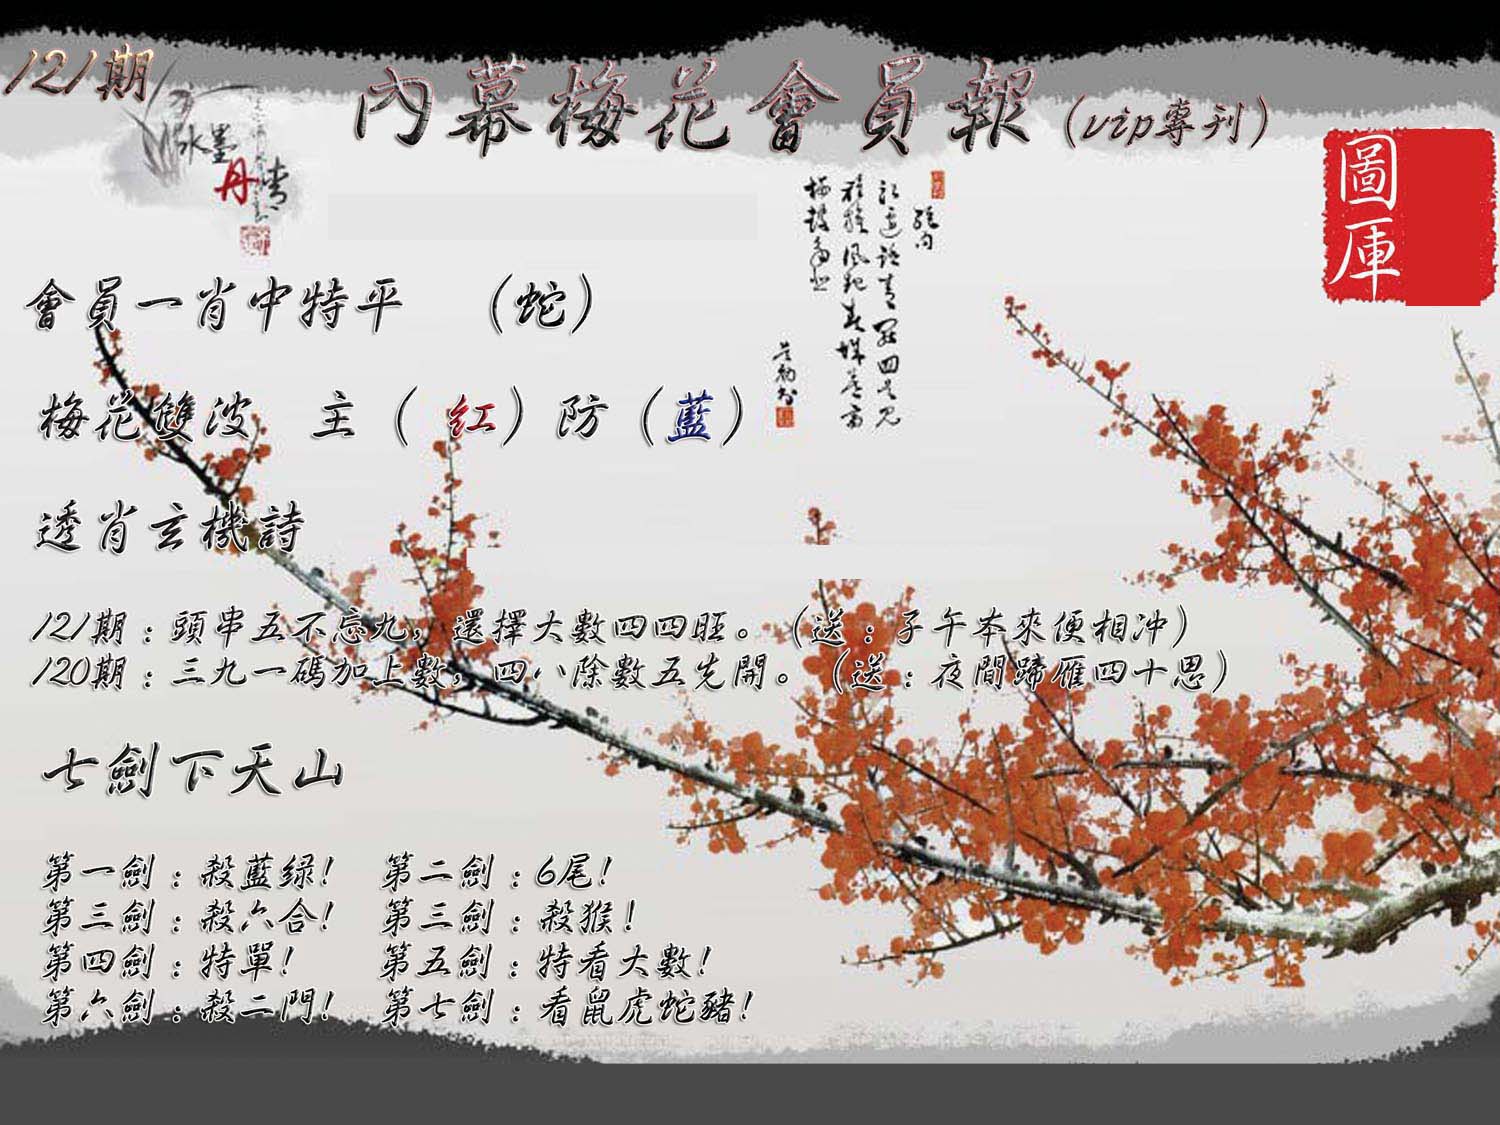 121期
內幕梅花會員報(vip專刊)
水墨
丹青
圖庫
會員一肖中特平 （蛇）
梅花雙波 主（紅）防（藍）
透肖玄機詩
121期：頭串五不忘九，還擇大數四四旺。（送：子午本來便相冲）
120期：三九一碼加上數，四八除數五先開。（送：夜間蹄雁四十思）
七劍下天山
第一劍：殺藍绿! 第二劍：6尾!
第三劍：殺六合! 第三劍：殺猴!
第四劍：特單! 第五劍：特看大數!
第六劍：殺二門! 第七劍：看鼠虎蛇豬!